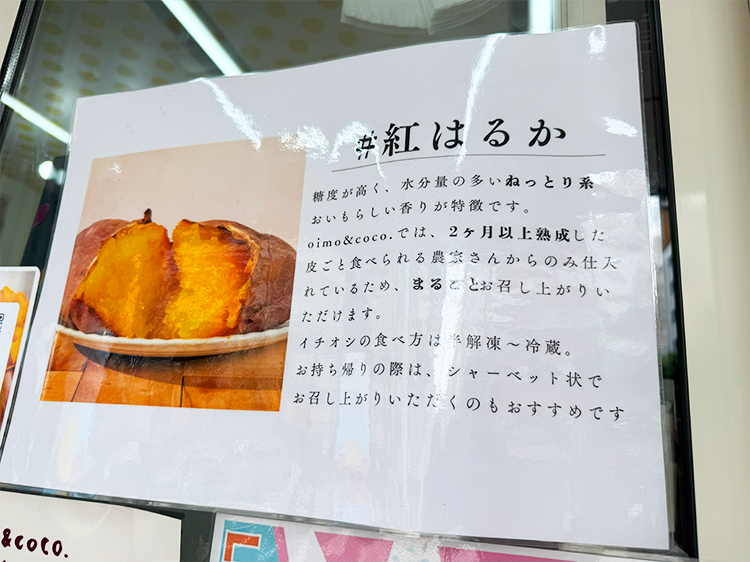 #紅はるか
糖度が高く、水分量の多いねっとり系
おいもらしい香りが特徴です。
oimo&coco.では、2ヶ月以上熟成した
皮ごと食べられる農家さんからのみ仕入
れているため、まるごとお召し上がりい
ただけます。
イチオシの食べ方は半解凍〜冷蔵。
お持ち帰りの際は、シャーベット状で
お召し上がりいただくのもおすすめです
&coco.